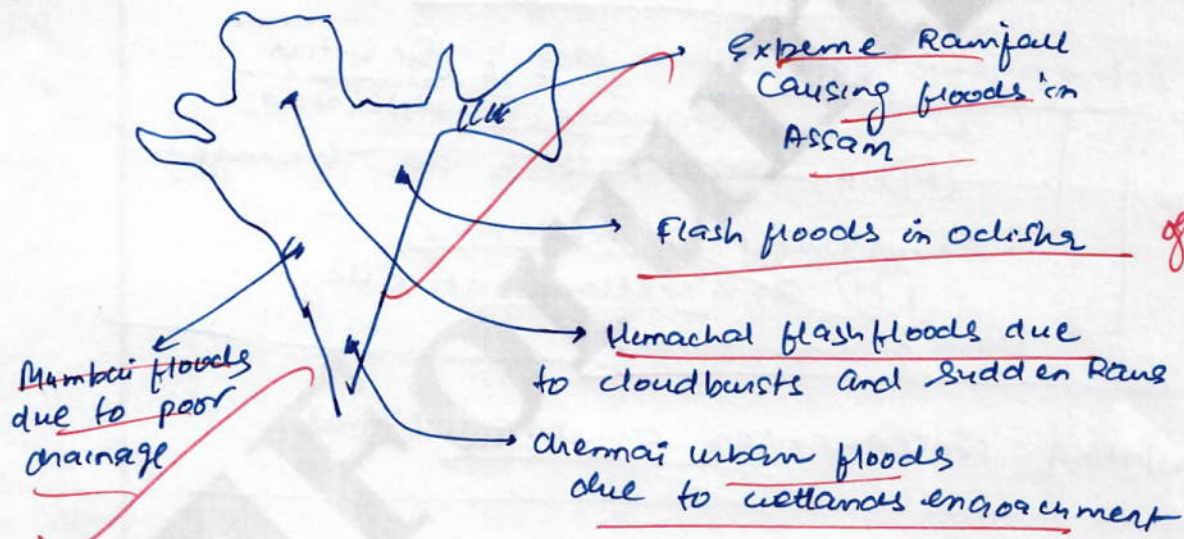 Expeme Rainfall
Causing floods in
Assam
Flash floods in odisha
Himachal flash floods due
to cloudbursts and sudden Rains
Mumbai floods
due to poor
drainage
Chennai urban floods
due to wetlands encroachment
Forum